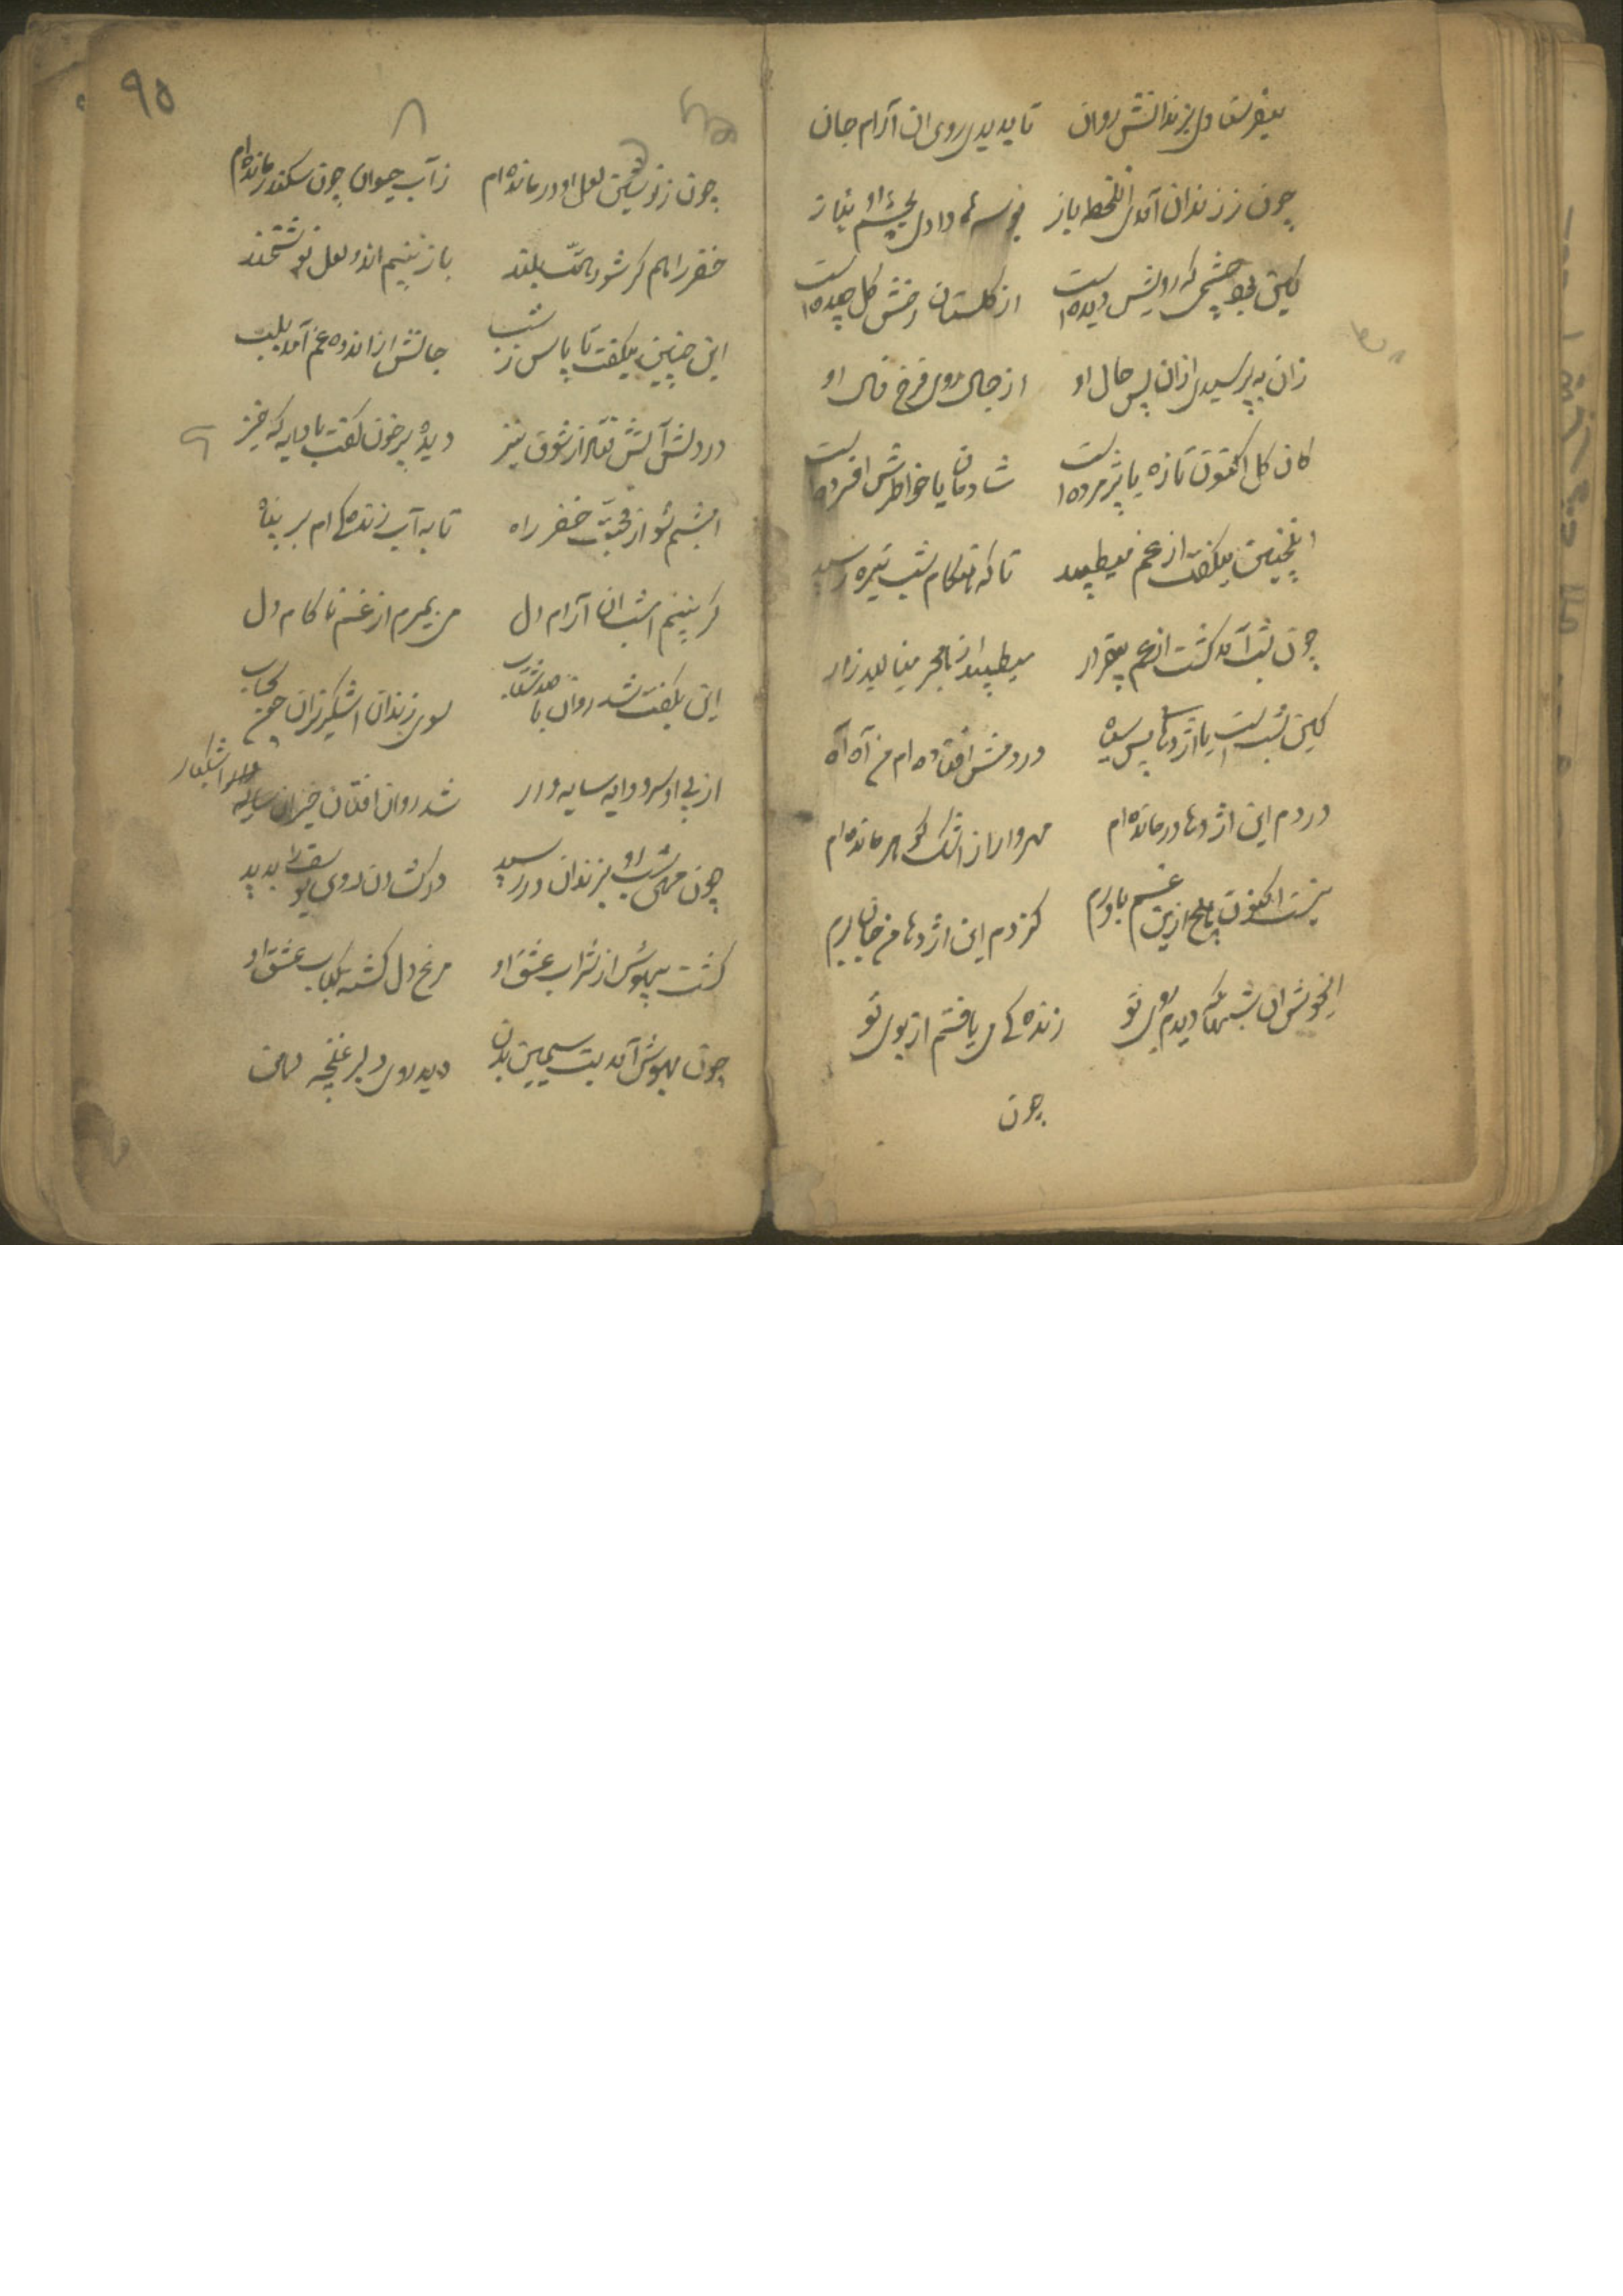 میفرستادی بزندانش روان تا بدیدی روی ان آرام جان
چون ز زندان آمدی انلخطه باز بوسه‌ها دادی بچشم او بناز
کین بود چشمی که رویش دیده است از گلستان رخش گل چیده است
زان به پرسیدی ازان پس حال او از جمال روی فرخ فال او
کان گل اکنون تازه یا پژمرده است شادمان یا خواطرش افسرده است
اینچنین میگفت از غم میطپید تا که هنکام شب تیره رسید
چون شب آمد گشت از غم بیقرار میطپید از هجر مینالید زار
کین شب است یا اژدهای بس سیاه در دمش افتاده‌ام من آه آه
در دم این اژدها درمانده‌ام مهره وار از اشک گوهر مانده‌ام
نیست اکنون هیچ ازین غم باورم کز دم این اژدها من جان برم
ایخوش ان شبها که دیدم روی تو زنده کی می یافتم از بوی تو
چون
۹۵
چون ز نوشین لعل او درمانده‌ام ز آب حیوان چون سکندر مانده‌ام
خضر راهم گر شود همت بلند باز بینم اندر لعل نوشخند
این چنین میگفت تا پاسی ز شب جانش از اندوه غم آمد بلب
در دلش آتش فتاد از شوق تیز دیده پر خون گفت با دایه که خیز
امشبم شو از محبت خضر راه تا به آب زنده‌کی ام بر پناه
گر نبینم امشب ان آرام دل من بمیرم از غم ناکام دل
این بگفت شد روان با صد شتاب سوی زندان اشکریزان چون سحاب
از پی او سرو دایه سایه وار شد روان افتان خیزان اشکبار
چون مهی شب او بزندان در رسید در گشادن روی یوسف را بدید
گشت بیهوش از شراب عشق او مرغ دل گشته کباب عشق او
چون بهوش آمد بت سیمین بدن دید روی دلبر غنچه دهن